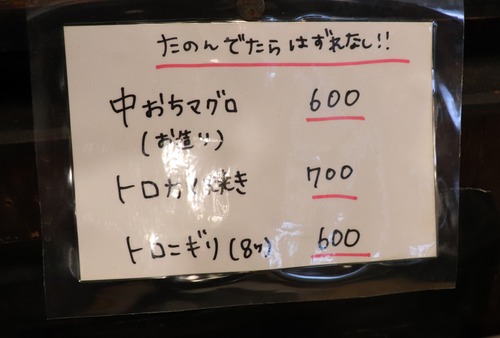 たのんでたらはずれなし!!
中おちマグロ 600
(お造り)
トロカマ焼き 700
トロニギリ(8ケ) 600